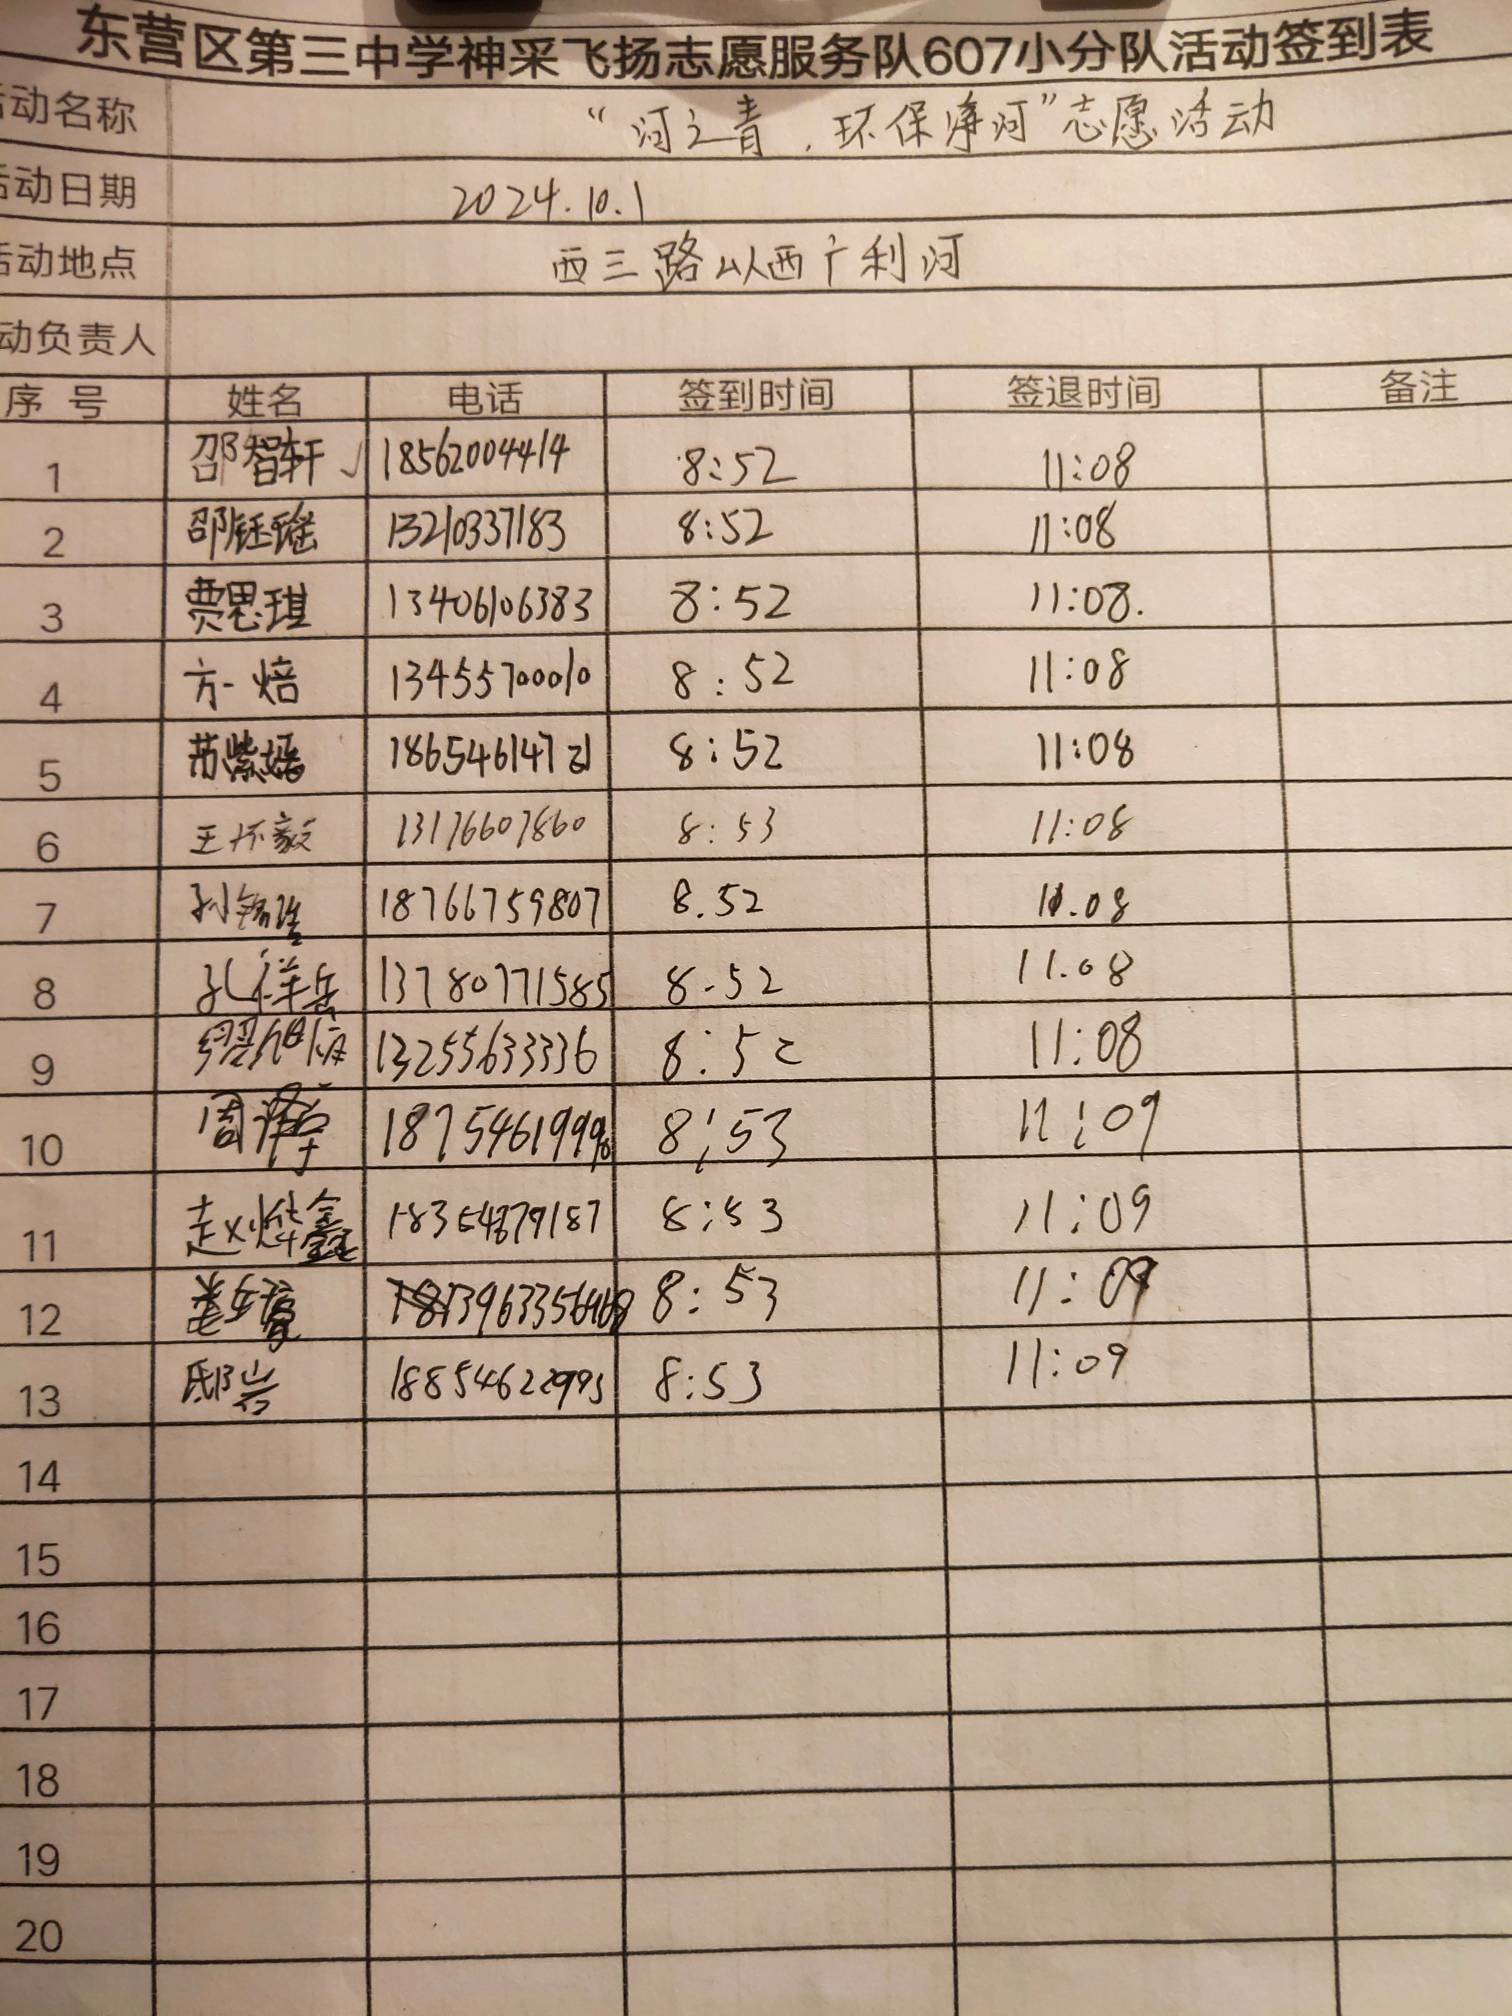 东营区第三中学神采飞扬志愿服务队607小分队活动签到表
活动名称 “河之青，环保净河”志愿活动
活动日期 2024.10.1
活动地点 西三路以西广利河
动负责人
序号 姓名 电话 签到时间 签退时间 备注
1 邵智轩 √ 18562004414 8:52 11:08
2 邵钰瑶 13210337183 8:52 11:08
3 贾思琪 13406106383 8:52 11:08.
4 方一焙 13455700010 8:52 11:08
5 苏紫瑶 18654614721 8:52 11:08
6 王怀毅 13176607860 8:53 11:08
7 孙 18766759807 8.52 11.08
8 孔祥岳 13780771585 8.52 11.08
9 13255633336 8:52 11:08
10 周泽宇 8:53 11:09
11 赵烨鑫 18354879187 8:53 11:09
12 8:53 11:09
13 邸岩 18854622993 8:53 11:09
14
15
16
17
18
19
20